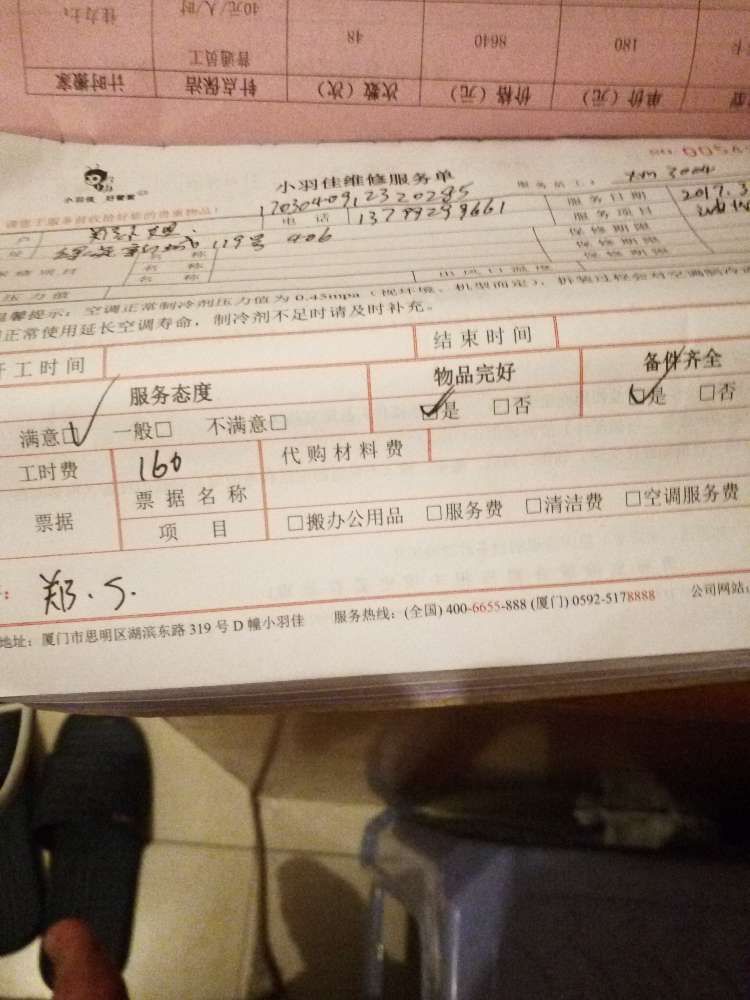 计时搬家 针点保洁 次数（次） 价格（元） 单价（元）
普通员工 48 8640 180
40元/人/时
小羽佳 好管家
小羽佳维修服务单
1703040912320285
服务员工： XM 3004
请客户服务前收拾好您的贵重物品！
电话 13799299661 服务日期 2017.3
119号 406 服务项目
名称 保修期限
名称 保修期限
名称 保修期限
压力值 出风口温度
温馨提示：空调正常制冷剂压力值为0.45mpa（视环境、机型而定），拆装过程会对空调制冷
正常使用延长空调寿命，制冷剂不足时请及时补充。
开工时间 结束时间
服务态度 物品完好 备件齐全
满意☑ 一般□ 不满意□ ☑是 □否 ☑是 □否
工时费 160 代购材料费
票据 票据名称
项目 □搬办公用品 □服务费 □清洁费 □空调服务费
郑.S.
地址：厦门市思明区湖滨东路319号D幢小羽佳 服务热线：(全国) 400-6655-888 (厦门) 0592-5178888 公司网站：